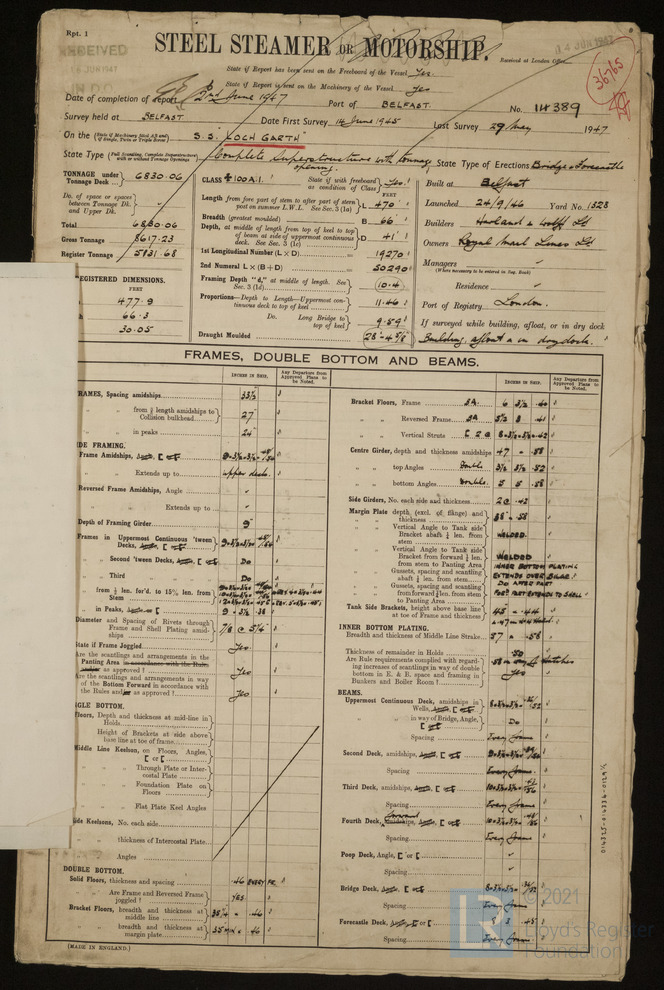 Rpt. 1
RECEIVED
JUN 1947
4 JUN 1947
STEEL STEAMER OR MOTORSHIP.
Received at London Office
36765
State if Report has been sent on the Freeboard of the Vessel Yes.
State if Report is sent on the Machinery of the Vessel Yes
Date of completion of report 2nd June 1947 Port of BELFAST. No. 14389
Survey held at BELFAST Date First Survey 14 June 1945 Last Survey 29 May 1947
On the S.S. "LOCH GARTH"
State Type Complete Superstructure with tonnage opening. State Type of Erections Bridge & Forecastle
TONNAGE under Tonnage Deck 6830.06
Do. of space or spaces between Tonnage Dk. and Upper Dk.
Total 6830.06
Gross Tonnage 8617.23
Register Tonnage 5781.68
REGISTERED DIMENSIONS.
FEET
477.9
66.3
30.05
CLASS 100.A.1. State if with freeboard as condition of Class Yes
FEET
Length from fore part of stem to after part of stern post on summer L.W.L. See Sec. 3 (1a) L 470
Breadth (greatest moulded) B 66
Depth, at middle of length from top of keel to top of beam at side of uppermost continuous deck. See Sec. 3 (1c) D 41
1st Longitudinal Number (L × D) 19270
2nd Numeral L × (B + D) 50290
Framing Depth "d," at middle of length. See Sec. 3 (1d) 10.4
Proportions—Depth to Length—Uppermost continuous deck to top of keel 11.46
Do. Long Bridge to top of keel 9.59
Draught Moulded 28'-4⅝"
Built at Belfast
Launched 24/9/46 Yard No. 1328
Builders Harland & Wolff Ld
Owners Royal Mail Lines Ld
Managers
(Where necessary to be entered in Reg. Book)
Residence
Port of Registry London.
If surveyed while building, afloat, or in dry dock
Building, afloat & in drydock.
FRAMES, DOUBLE BOTTOM AND BEAMS.
INCHES IN SHIP.
Any Departure from Approved Plans to be Noted.
INCHES IN SHIP.
Any Departure from Approved Plans to be Noted.
FRAMES, Spacing amidships 33½"
from ⅕ length amidships to Collision bulkhead 27"
in peaks 24"
SIDE FRAMING.
Frame Amidships,
Extends up to upper deck.
Reversed Frame Amidships, Angle
Extends up to
Depth of Framing Girder 9"
Frames in Uppermost Continuous 'tween Decks,
Second 'tween Decks, Do
Third Do
from ⅕ len. for'd. to 15% len. from Stem
in Peaks, 9 - 3½ .38
Diameter and Spacing of Rivets through Frame and Shell Plating amidships 7/8 @ 5¼"
State if Frame Joggled Yes
Are the scantlings and arrangements in the Panting Area in accordance with the Rules as approved? Yes
Are the scantlings and arrangements in way of the Bottom Forward in accordance with the Rules and as approved? Yes
SINGLE BOTTOM.
Floors, Depth and thickness at mid-line in Holds
Height of Brackets at side above base line at toe of frame
Middle Line Keelson, on Floors, Angles, [ or [
Through Plate or Intercostal Plate
Foundation Plate on Floors
Flat Plate Keel Angles
Side Keelsons, No. each side
thickness of Intercostal Plate
Angles
DOUBLE BOTTOM.
Solid Floors, thickness and spacing .46 EVERY FR.
Are Frame and Reversed Frame joggled? YES
Bracket Floors, breadth and thickness at middle line 38¼ × .46
breadth and thickness at margin plate 35 MIN × .46
(MADE IN ENGLAND.)
Bracket Floors, Frame BA. 6 3½ .40
Reversed Frame BA 5½ 3 .41
Vertical Struts
Centre Girder, depth and thickness amidships 47 × .58
top Angles Double 3½ 3½ .52
bottom Angles Double. 5 5 .58
Side Girders, No. each side and thickness 2 @ .42
Margin Plate depth (excl. of flange) and thickness 38 × .58
Vertical Angle to Tank side Bracket abaft ¼ len. from stem WELDED.
Vertical Angle to Tank side Bracket from forward ¼ len. from stem to Panting Area WELDED
Gussets, spacing and scantling abaft ¼ len. from stem INNER BOTTOM PLATING EXTENDS OVER BILGE.
Gussets, spacing and scantling from forward ¼ len. from stem to Panting Area DO AFTER PART
FOR'D PART EXTENDS TO SHELL
Tank Side Brackets, height above base line at toe of Frame and thickness 45 × .44
INNER BOTTOM PLATING.
Breadth and thickness of Middle Line Strake 57 × .56
Thickness of remainder in Holds .50
Are Rule requirements complied with regarding increases of scantlings in way of double bottom in E. & B. space and framing in Bunkers and Boiler Room? Yes
BEAMS.
Uppermost Continuous Deck, amidships in Wells,
in way of Bridge, Angle, [ or [ Do
Spacing Every frame
Second Deck, amidships,
Spacing Every frame.
Third Deck, amidships,
Spacing Every frame
Fourth Deck, forward
Spacing Every frame
Poop Deck, Angle, [ or [
Spacing
Bridge Deck,
Spacing Every frame
Forecastle Deck,
Spacing Every frame
© 2021
Lloyd's Register
Foundation
LR